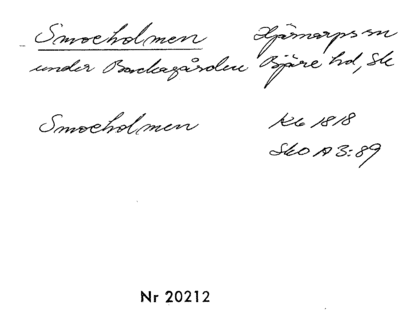 Smocholmen Hjärnarps sn
under Backagården Bjäre hd, Sk
Smocholmen Kb 1818
SkO A 3:89
Nr 20212